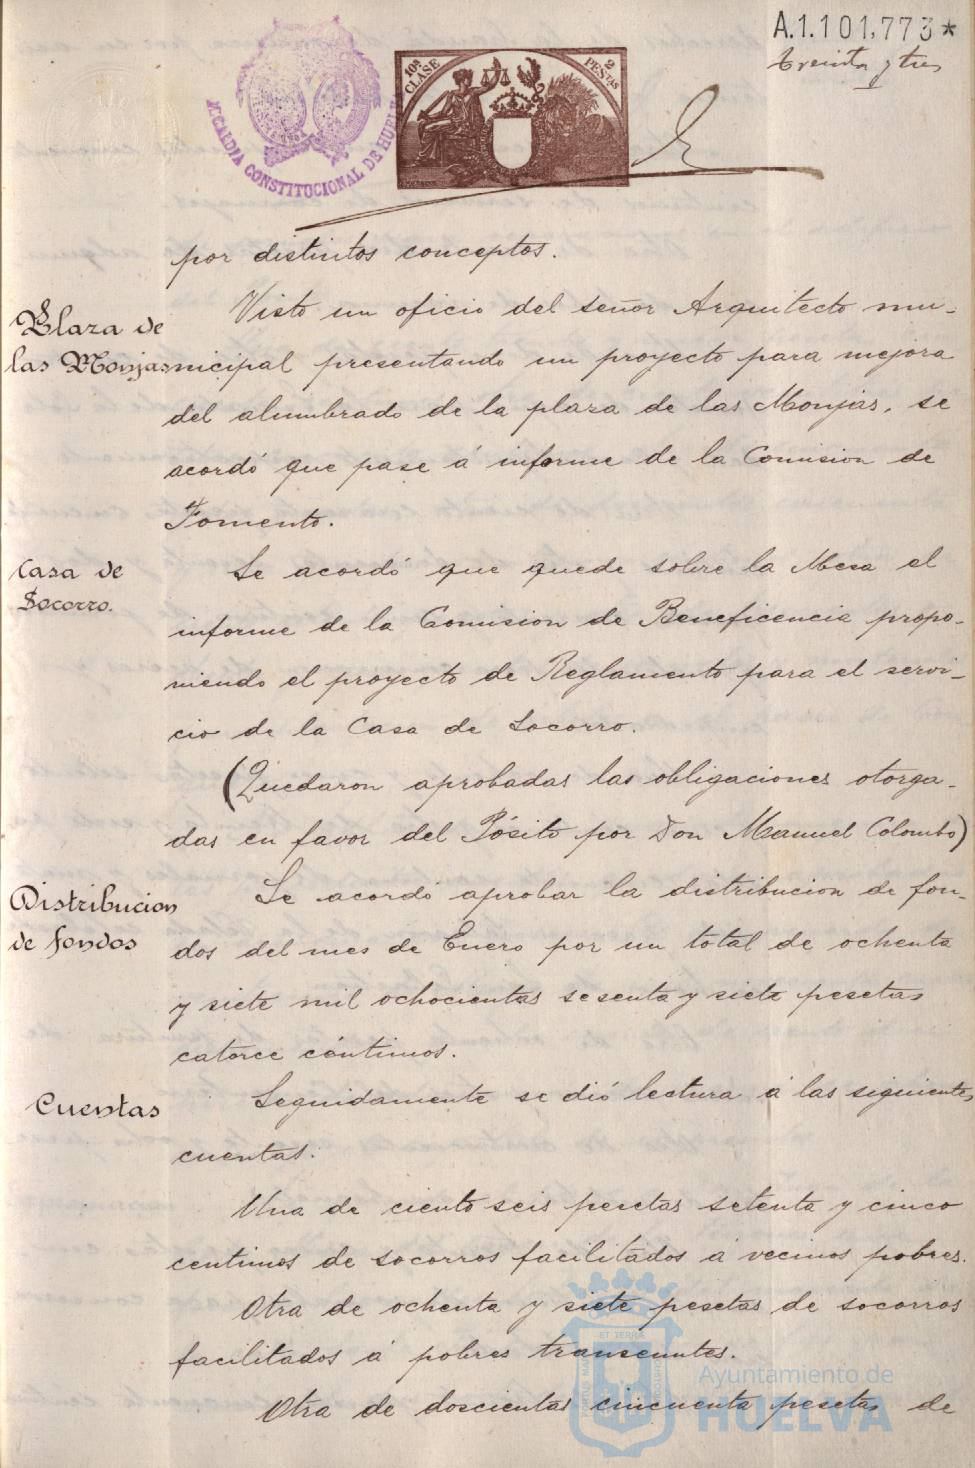 A.1.101,773*
treinta y tres
10ª CLASE
2 PESTAS
ALCARDIA CONSTITUCIONAL DE HUELVA
por distintos conceptos.
Plaza de
las Monjas
Visto un oficio del señor Arquitecto mu-
nicipal presentando un proyecto para mejora
del alumbrado de la plaza de las Monjas, se
acordó que pase á informe de la Comision de
Fomento.
Casa de
Socorro.
Se acordó que quede sobre la Mesa el
informe de la Comision de Beneficencia propo-
niendo el proyecto de Reglamento para el servi-
cio de la Casa de Socorro.
(Quedaron aprobadas las obligaciones otorga-
das en favor del Pósito por Don Manuel Colombo)
Distribucion
de fondos
Se acordó aprobar la distribucion de fon-
dos del mes de Enero por un total de ochenta
y siete mil ochocientas sesenta y siete pesetas
catorce céntimos.
Cuentas
Seguidamente se dió lectura á las siguientes
cuentas.
Una de ciento seis pesetas setenta y cinco
centimos de socorros facilitados á vecinos pobres.
Otra de ochenta y siete pesetas de socorros
facilitados á pobres transeuntes.
Otra de doscientas cincuenta pesetas de
Ayuntamiento de
HUELVA